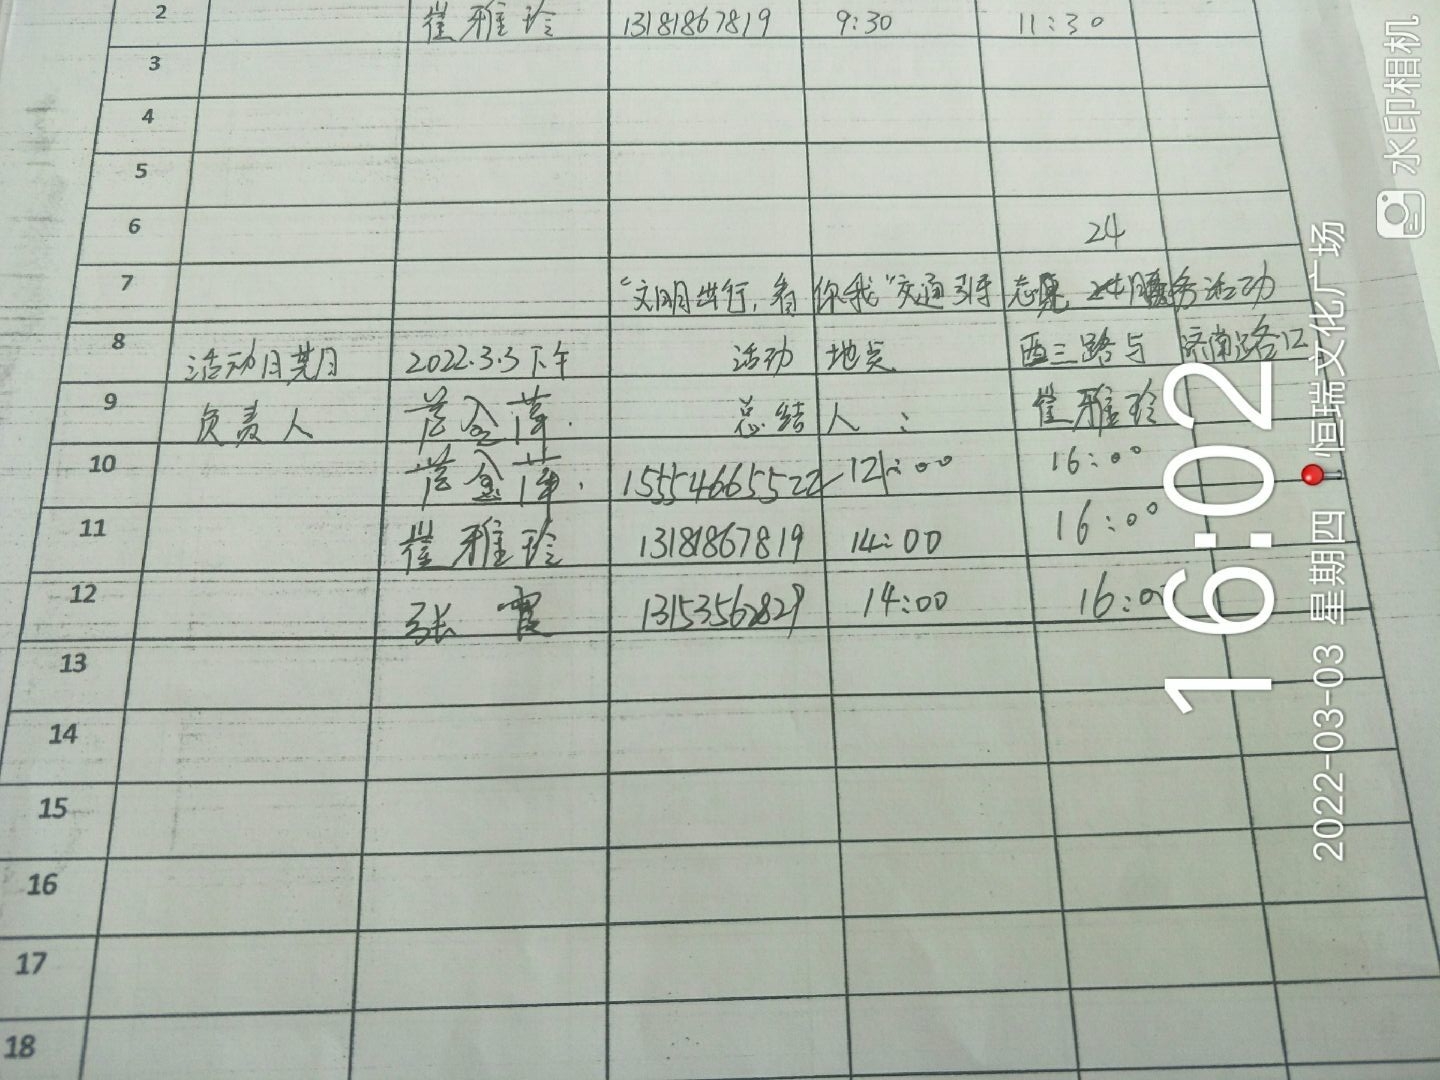 2 崔雅玲 13181867819 9:30 11:30
3
4
5
6 24
7 "文明出行,有你我"交通引导志愿服务活动
8 活动日期 2022.3.3下午 活动地点 西三路与济南路口
9 负责人 总结人: 崔雅玲
10 15554665522 16:00
11 崔雅玲 13181867819 14:00 16:00
12 张霞 14:00 16:00
13
14
15
16
17
18
水印相机
16:02
2022-03-03 星期四 恒瑞文化广场